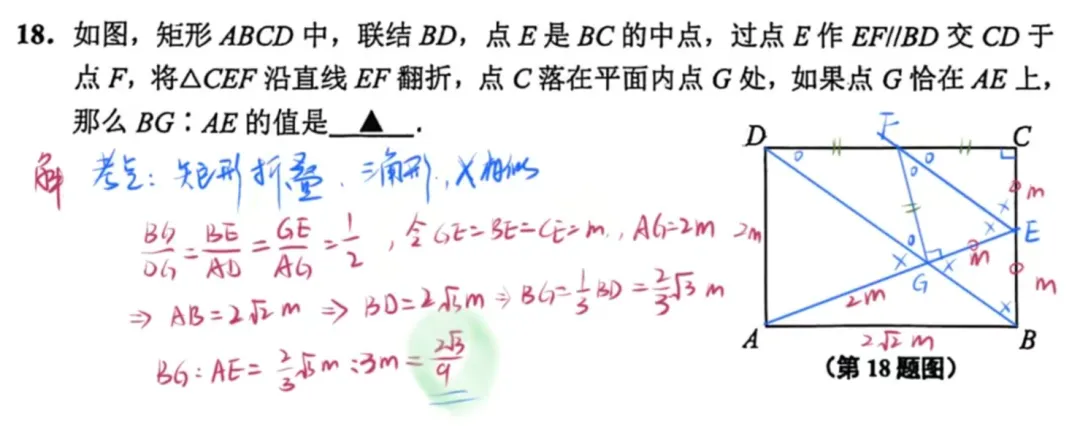 18. 如图，矩形 ABCD 中，联结 BD，点 E 是 BC 的中点，过点 E 作 EF//BD 交 CD 于
点 F，将△CEF 沿直线 EF 翻折，点 C 落在平面内点 G 处，如果点 G 恰在 AE 上，
那么 BG：AE 的值是 ▲ .
解 考点：矩形折叠、三角形，X相似
BG/DG=BE/AD=GE/AG=1/2，令GE=BE=CE=m，AG=2m
⇒ AB=2√2 m ⇒ BD=2√3 m ⇒ BG=1/3 BD=2/3 √3 m
BG：AE=2/3 √3 m：3m=2√3/9
D F C
m
2m E
m
G m
2m
A 2√2 m B
(第 18 题图)